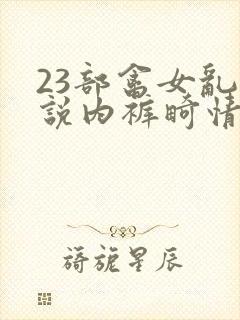 23部畜女乱
説内裤畸情
旖旎星辰